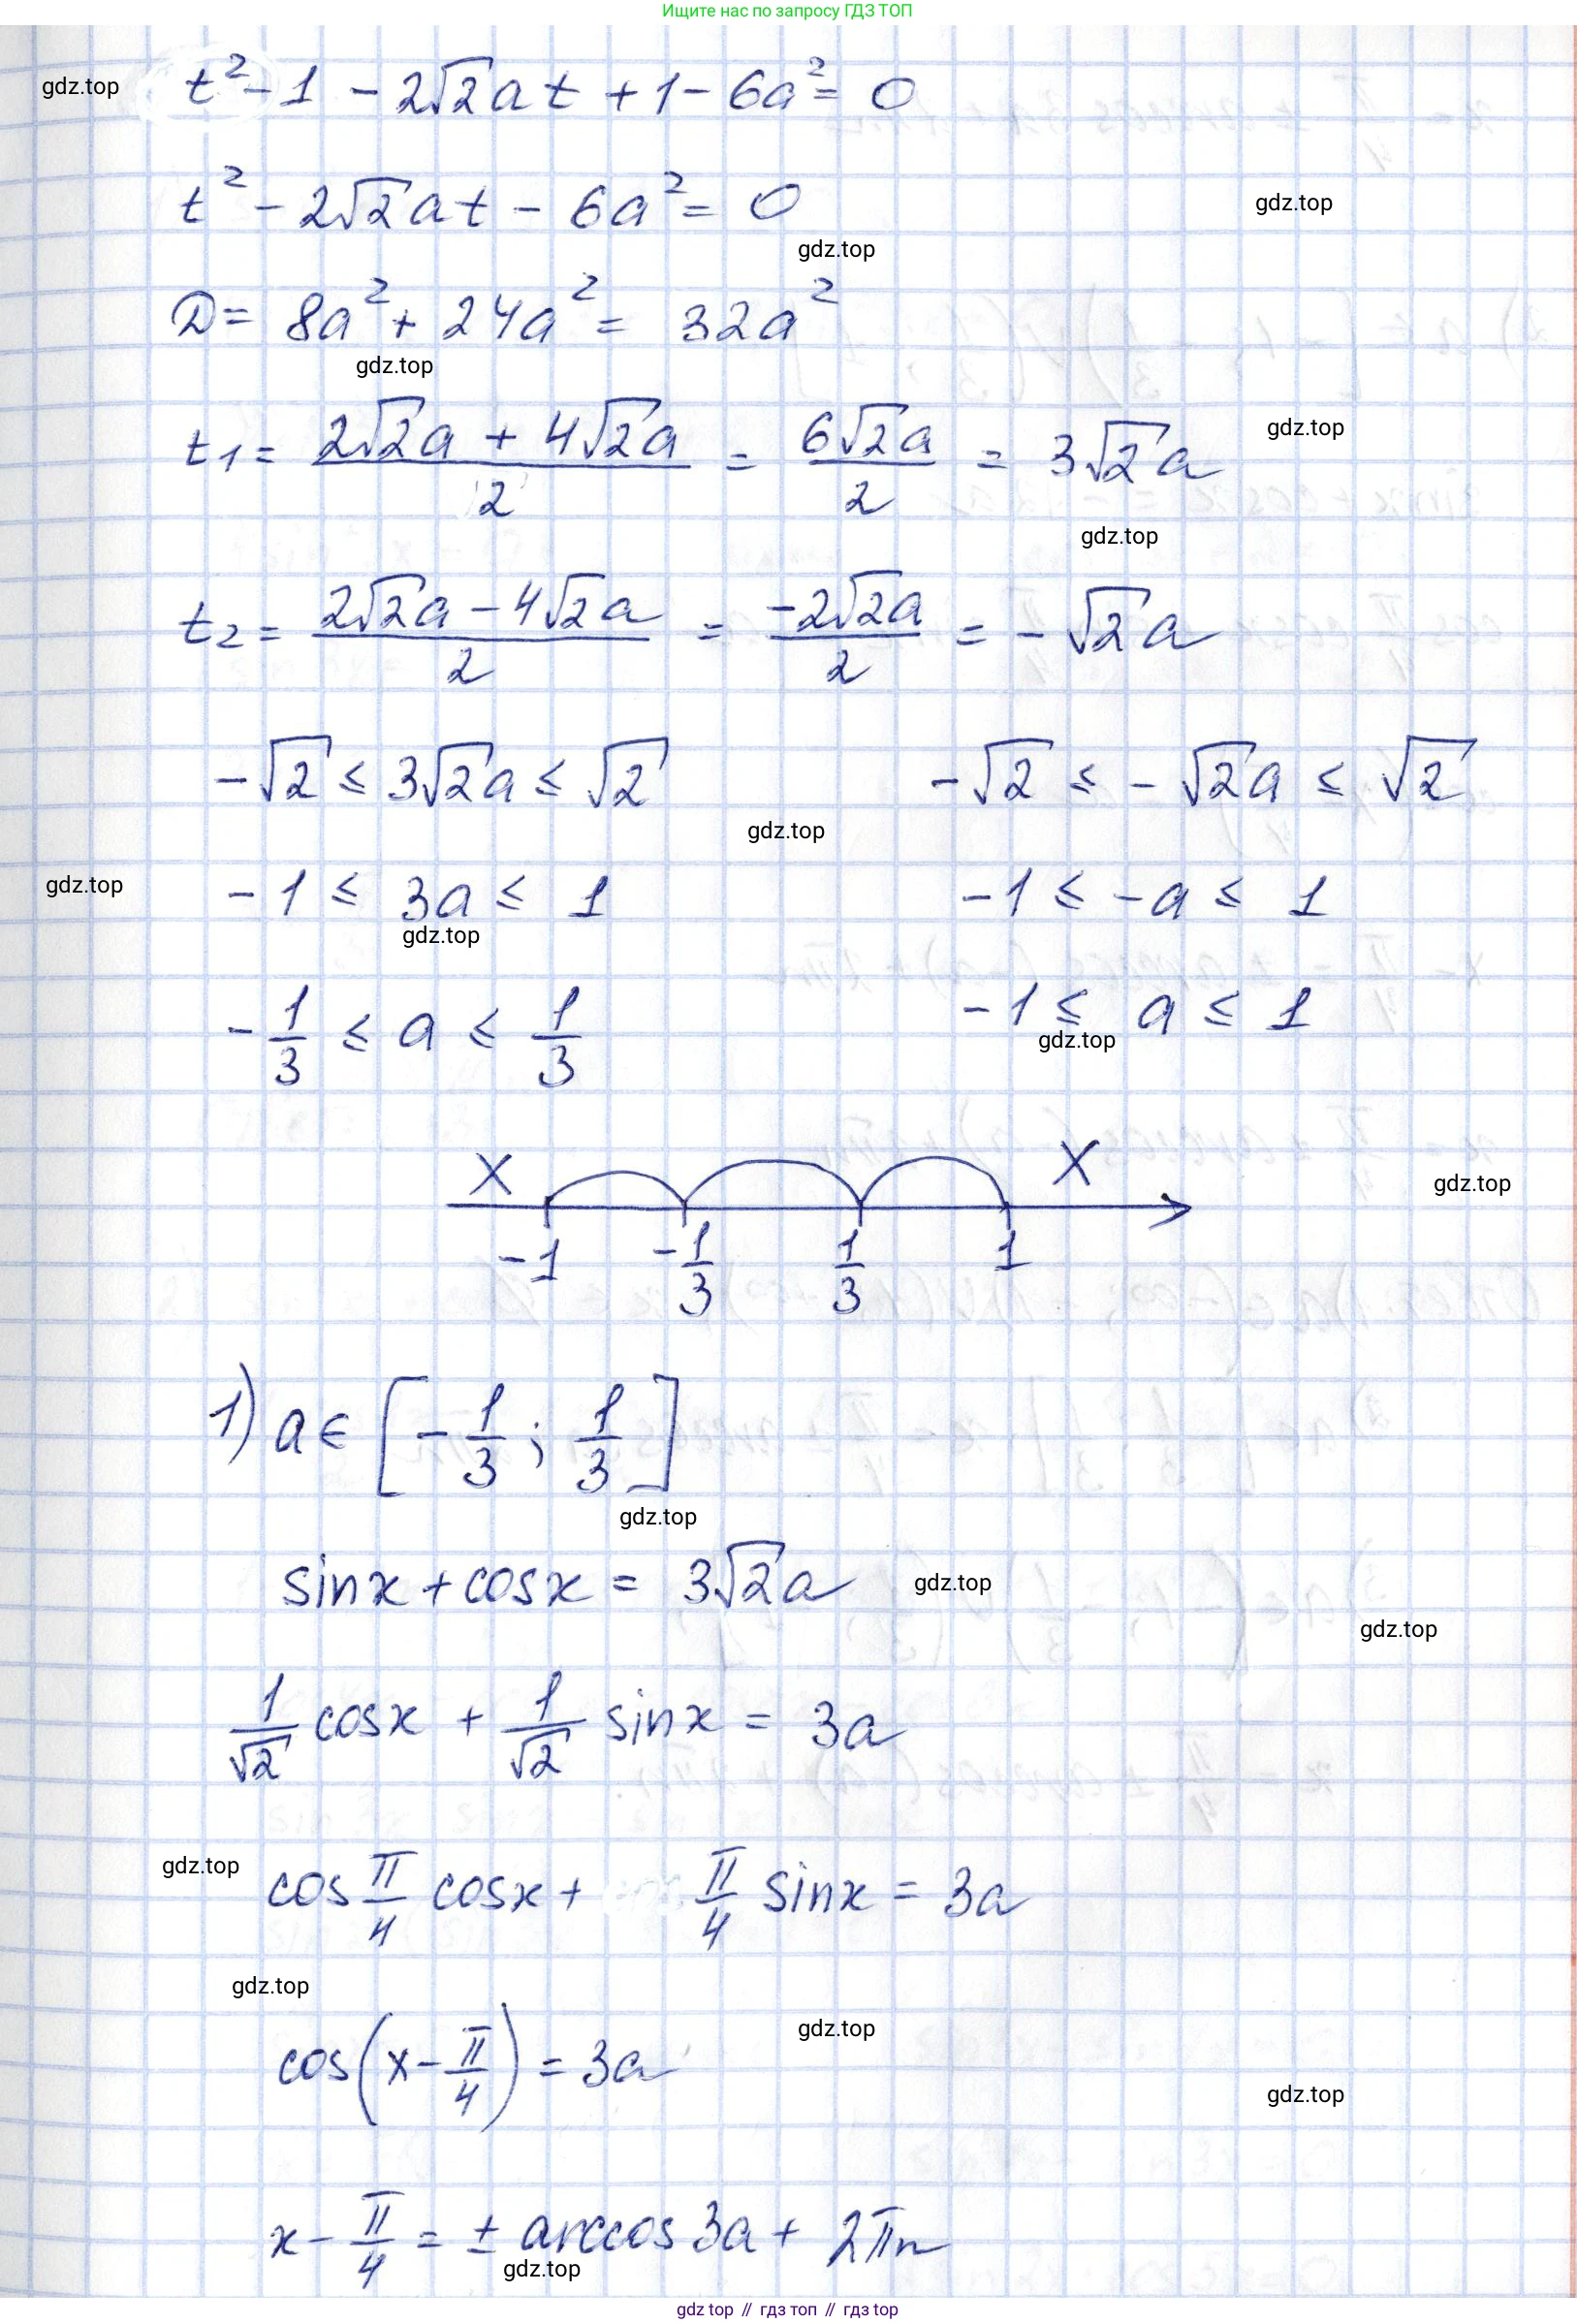 Ищите нас по запросу ГДЗ ТОП
t² - 1 - 2√2at + 1 - 6a² = 0
gdz.top
t² - 2√2at - 6a² = 0
gdz.top
gdz.top
D = 8a² + 24a² = 32a²
gdz.top
t₁ = (2√2a + 4√2a)/2 = 6√2a/2 = 3√2a
gdz.top
gdz.top
t₂ = (2√2a - 4√2a)/2 = -2√2a/2 = -√2a
-√2 ≤ 3√2a ≤ √2 -√2 ≤ -√2a ≤ √2
gdz.top
gdz.top
-1 ≤ 3a ≤ 1 -1 ≤ -a ≤ 1
gdz.top
-1/3 ≤ a ≤ 1/3 -1 ≤ a ≤ 1
gdz.top
X X
gdz.top
-1 -1/3 1/3 1
1) a ∈ [-1/3; 1/3]
gdz.top
sinx + cosx = 3√2a
gdz.top
gdz.top
1/√2 cosx + 1/√2 sinx = 3a
gdz.top
cos π/4 cosx + π/4 sinx = 3a
gdz.top
gdz.top
cos(x - π/4) = 3a
gdz.top
x - π/4 = ± arccos 3a + 2πn
gdz.top
gdz top // гдз топ // гдз top